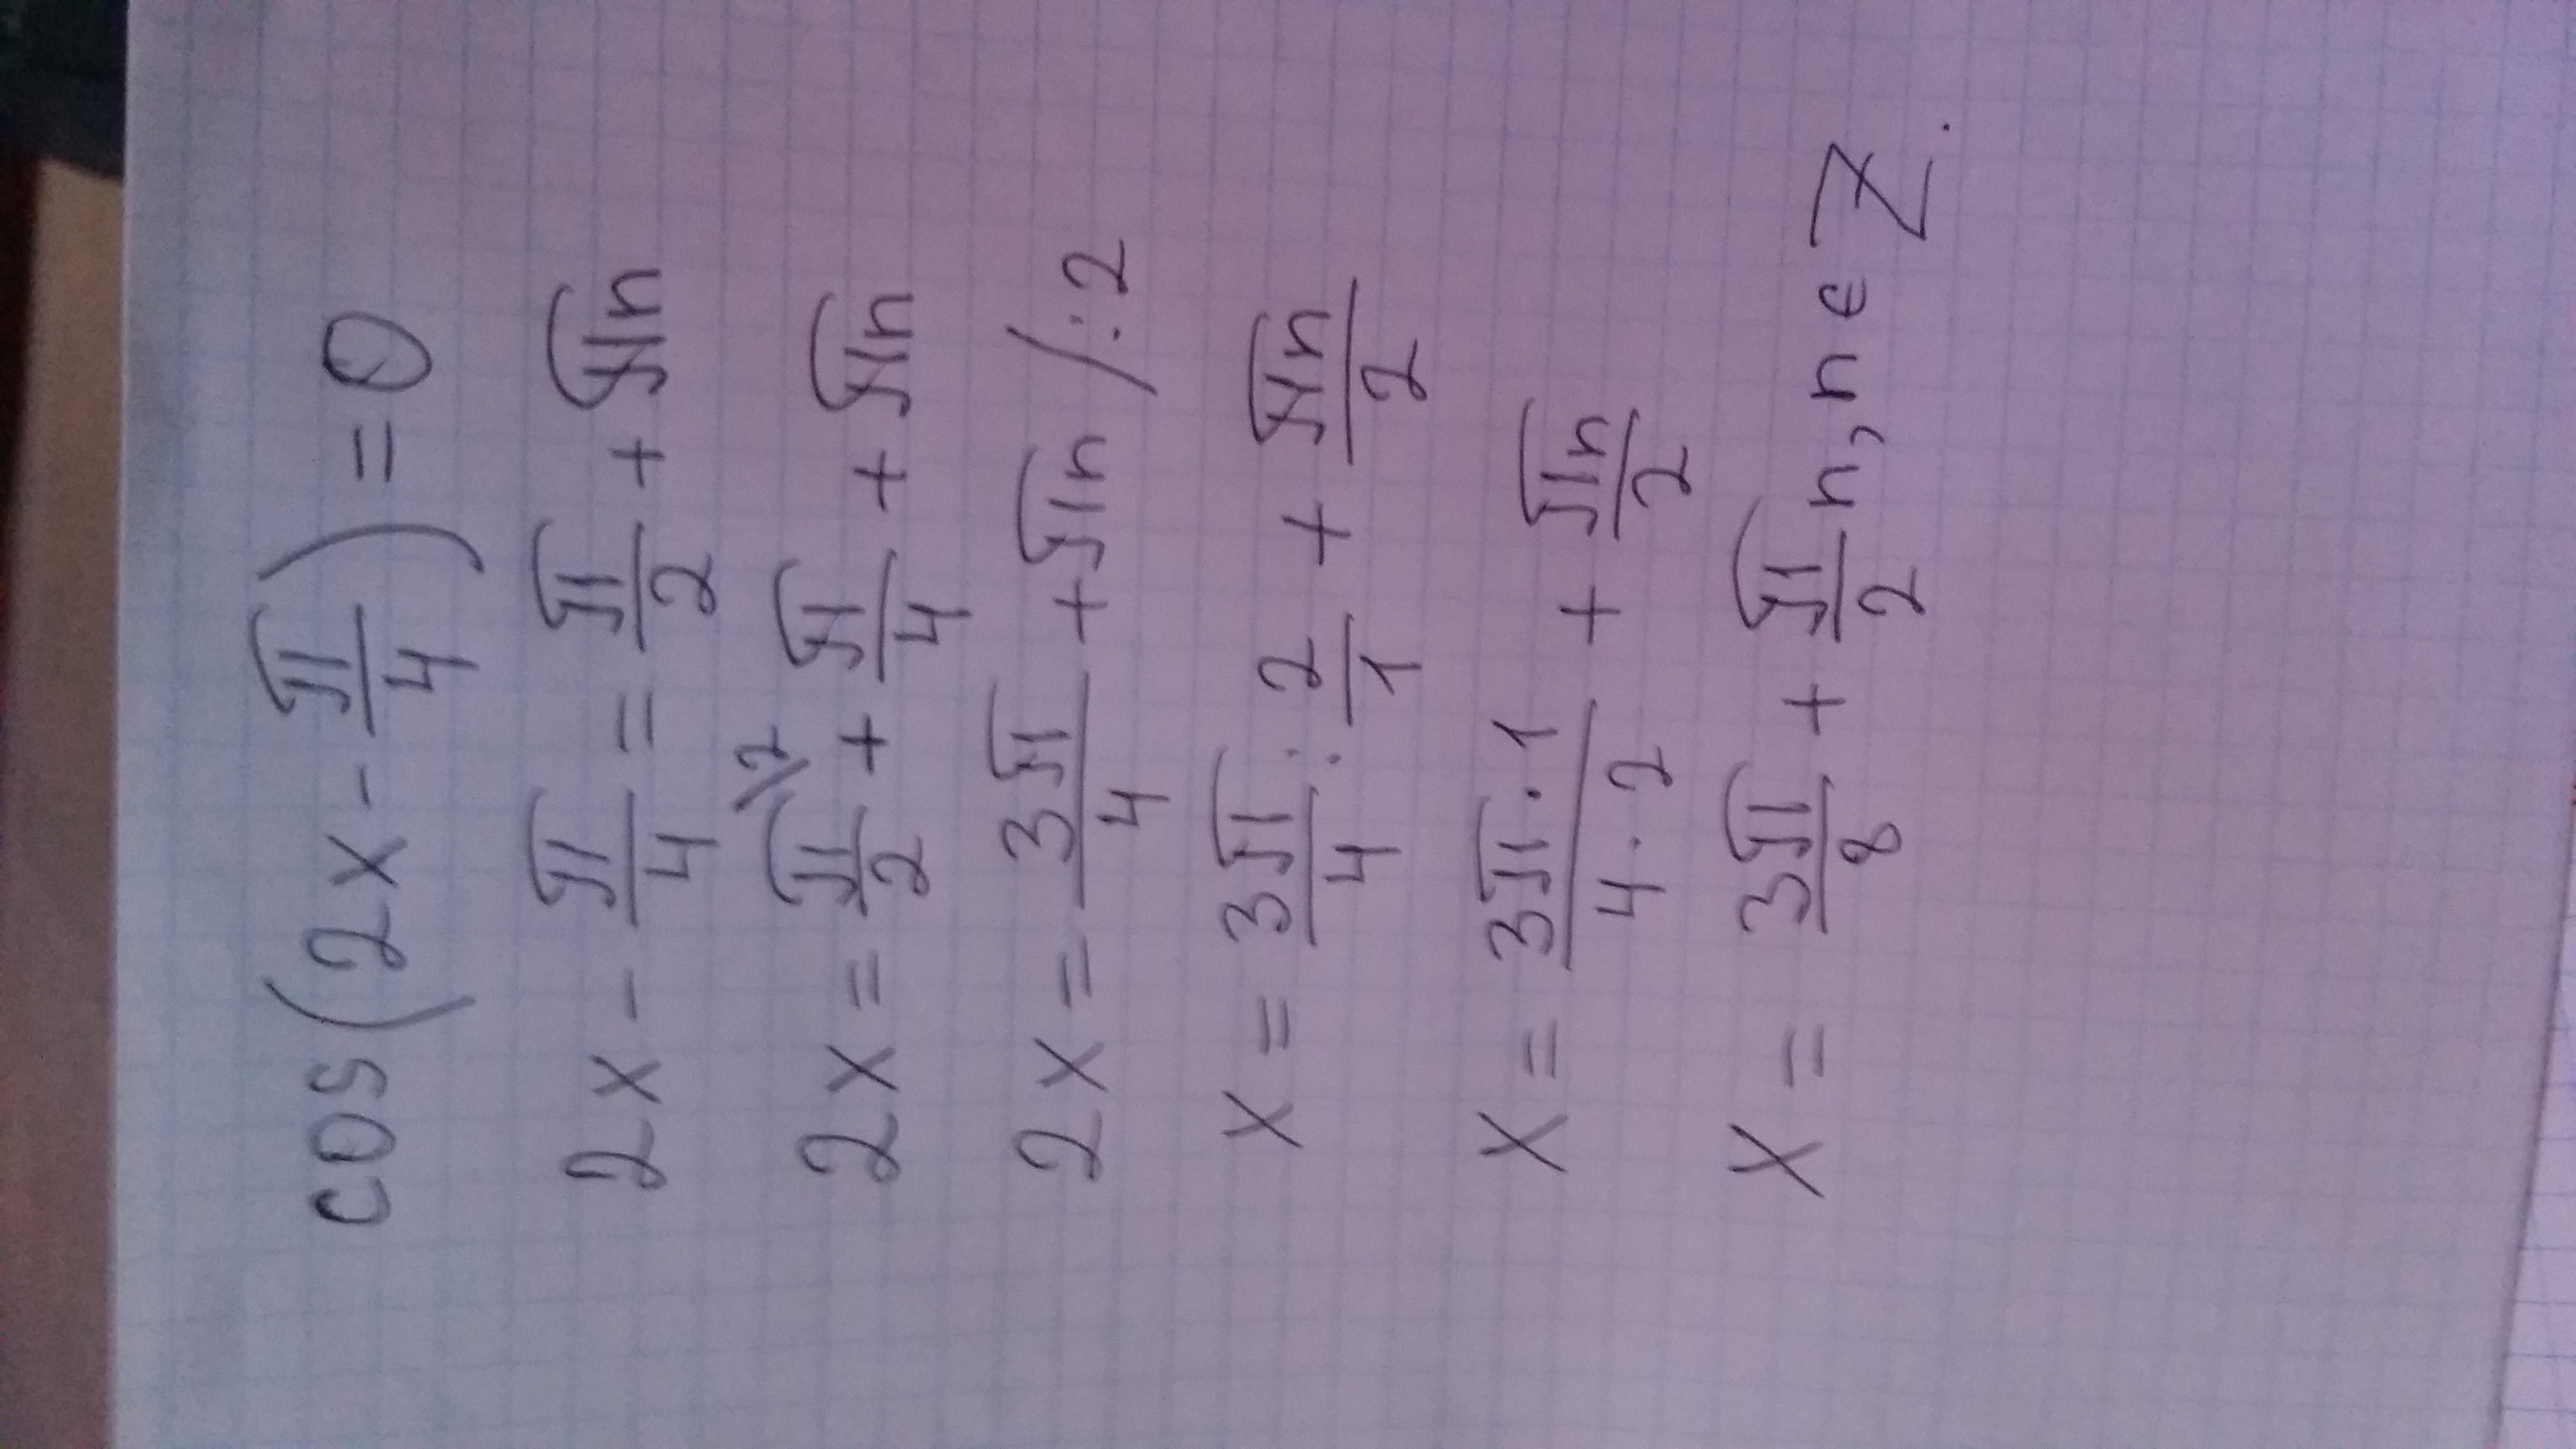 cos(2x - π/4) = 0
2x - π/4 = π/2 + πn
2x = π/2 \2 + π/4 + πn
2x = 3π/4 + πn /:2
x = 3π/4 : 2/1 + πn/2
x = 3π·1/4·2 + πn/2
x = 3π/8 + π/2 n, n ∈ Z.